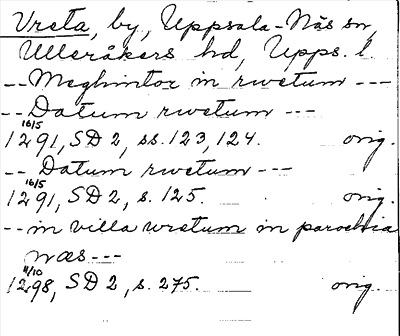 Vreta, by, Uppsala-Näs sn,
Ulleråkers hd, Upps. l.
-- Meghintor in rwetum ---
-- Datum rwetum ---
16/5
1291, SD 2, ss. 123, 124. orig.
-- Datum rwetum ---
16/5
1291, SD 2, s. 125. orig.
-- in villa wretum in parochia
næs ---
11/10
1298, SD 2, s. 275. orig.